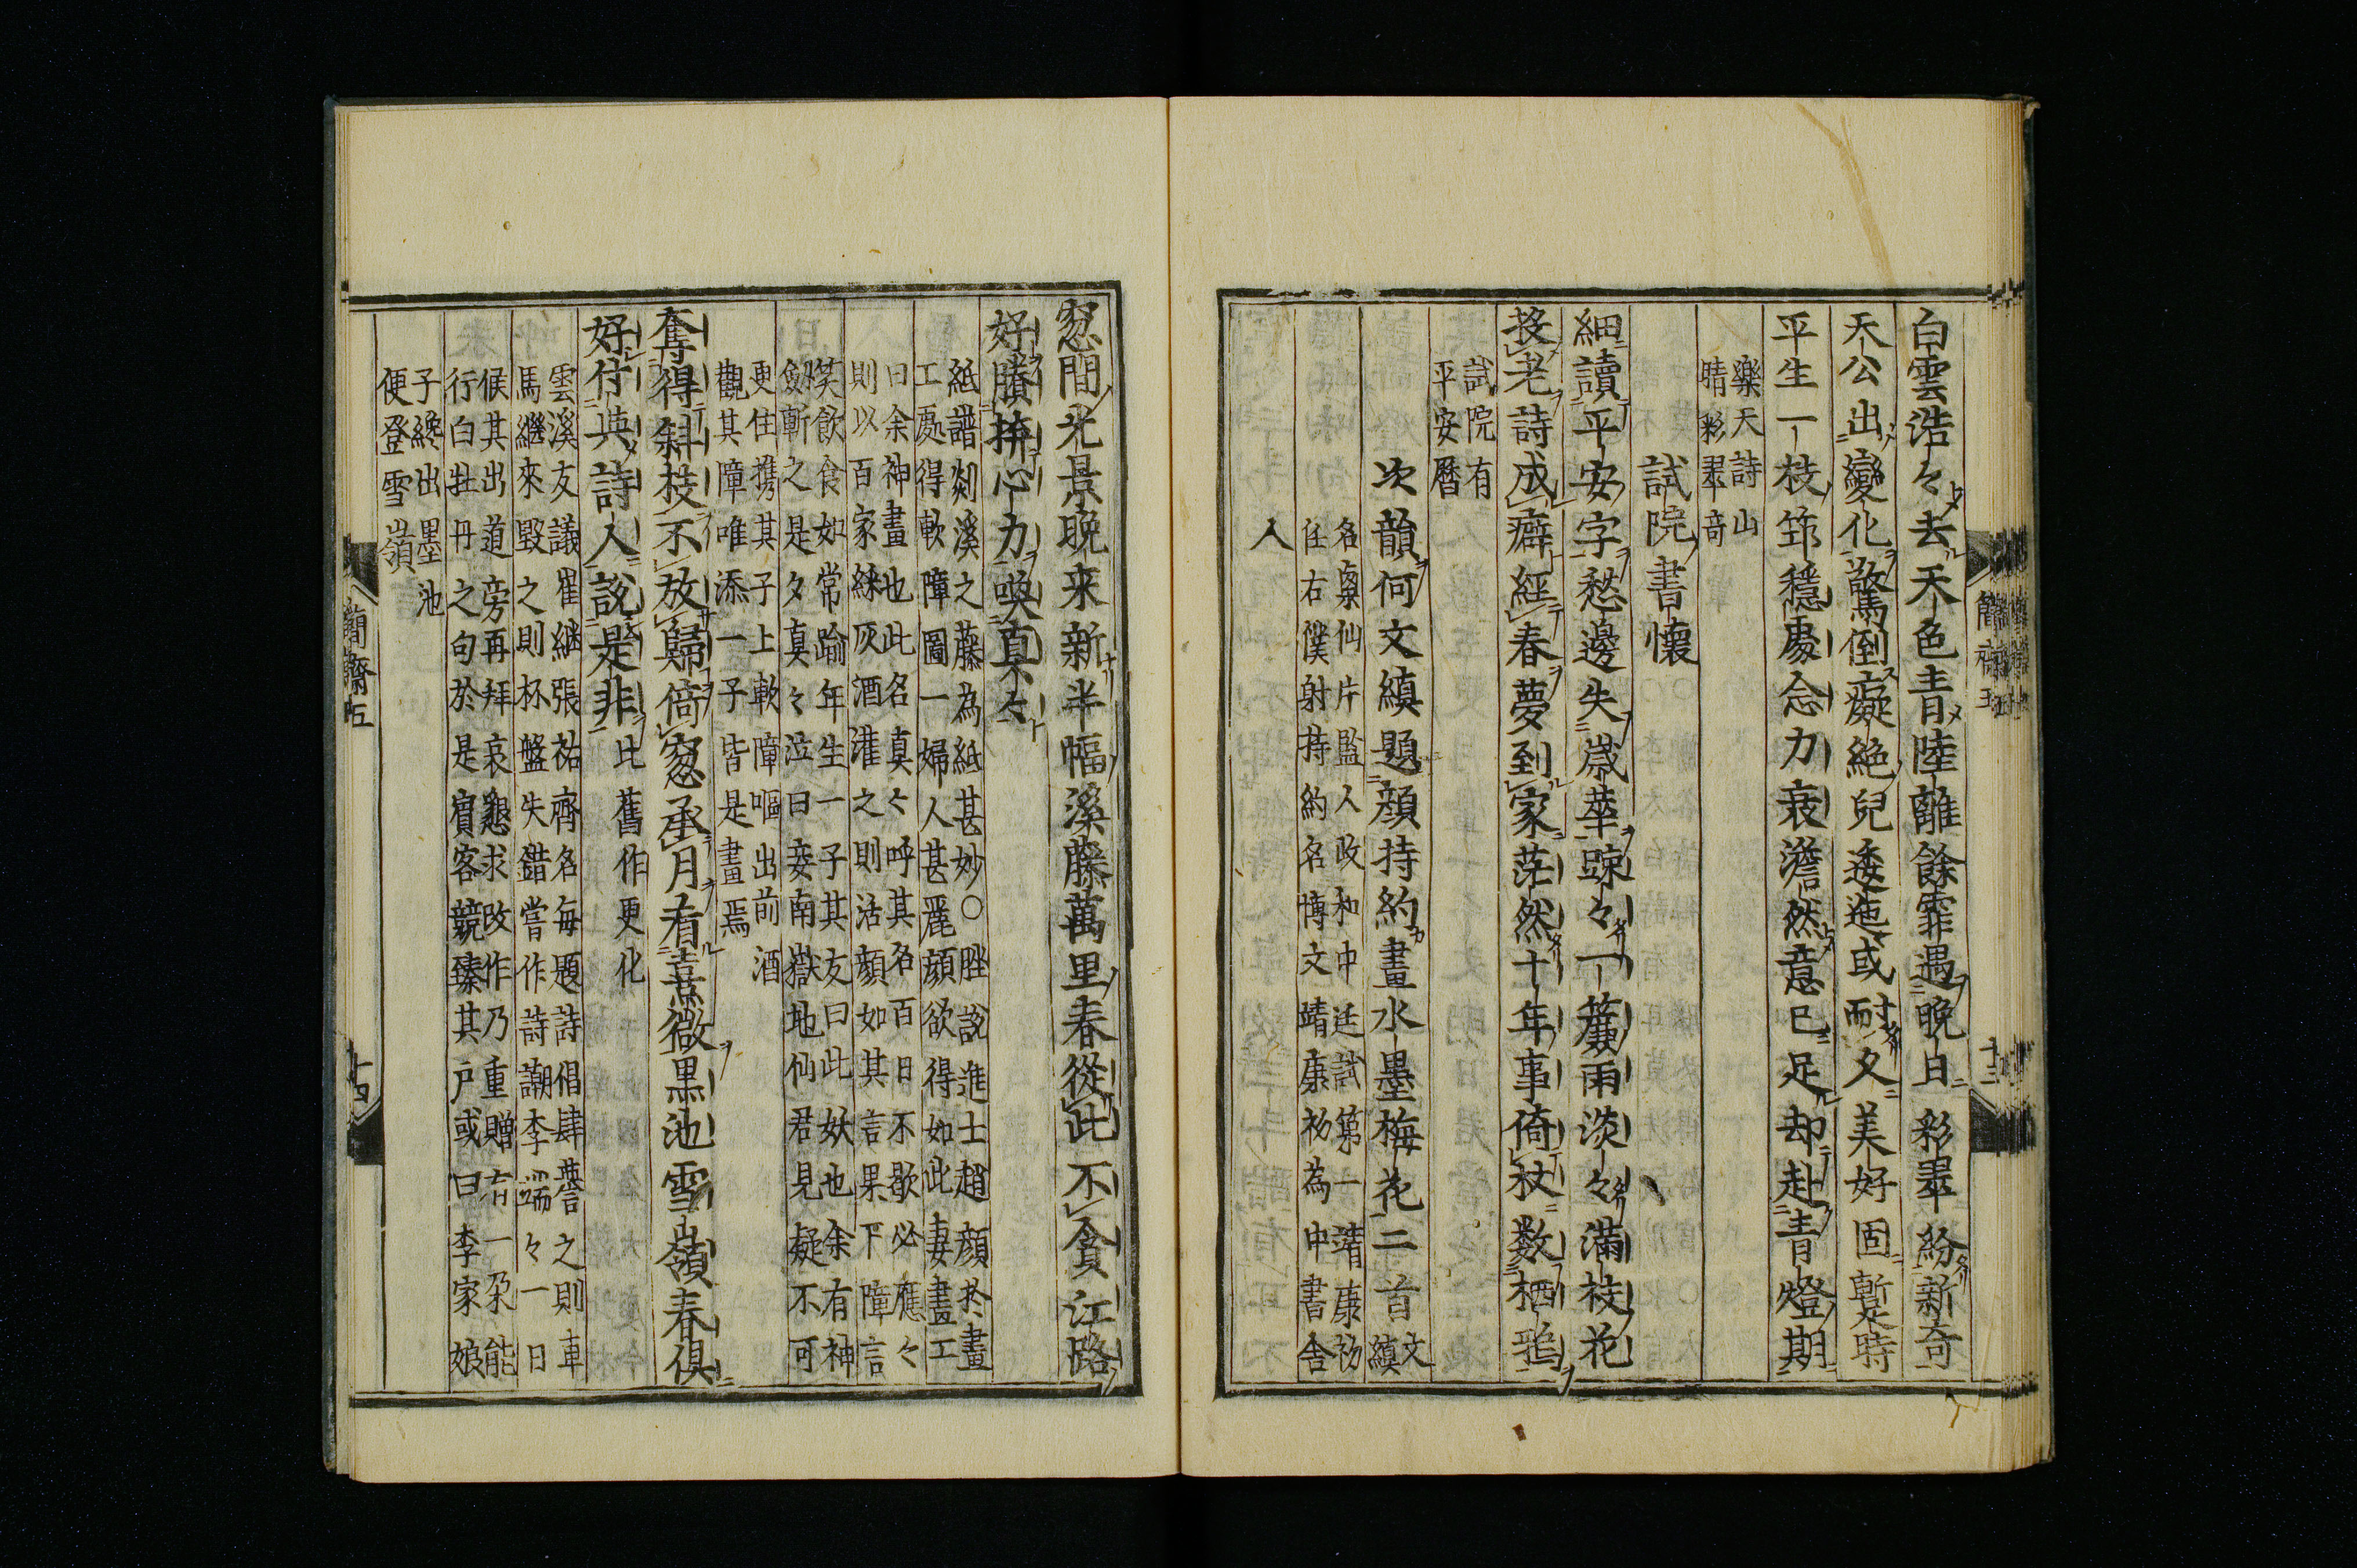 白雲浩々去天色青陸離餘霏遇晚日彩翠紛新奇
天公出變化驚倒癡絕兒逶迤或耐久美好固暫時
平生一枝筇穩處念力衰澹然意已足却赴青燈期
樂天詩山
晴彩翠奇
試院書懷
細讀平安字愁邊失歲華踈々一簾雨淡々滿枝花
投老詩成癖經春夢到家茫然十年事倚杖数栖鴉
試院有
平安曆
次韻何文縝題顔持約畫水墨梅花二首
文
縝
名㮚仙片監人政和中廷試第一靖康初
任右僕射持約名博文靖康初為中書舎
人
窓間光景晚来新半幅溪藤萬里春從此不貪江路
好賸拚心力喚真々
紙譜剡溪之藤為紙甚妙○胜說進士趙顔於畫
工處得軟障圖一婦人甚麗顔欲得如此妻畫工
曰余神畫也此名真々呼其名百日不歇必應々
則以百家綵灰酒灌之則活顔如其言果下障言
笑飲食如常踰年生一子其友曰此妖也余有神
劔斬之是夕真々泣曰妾南嶽地仙君見疑不可
更住携其子上軟障嘔出前酒
觀其障唯添一子皆是畫焉
奪得斜枝不放歸倚窓承月看熹微黒池雪嶺春俱
好付與詩人說是非
比舊作更化
雲溪友議崔継張祐齊名每題詩倡肆譽之則車
馬繼來毀之則杯盤失錯嘗作詩嘲李端々一日
候其出道旁再拜哀懇求改作乃重贈有一朶能
行白牡丹之句於是賓客競臻其户或曰李家娘
子纔出墨池
便登雪嶺
簡齋五
十四
簡齋五
十三